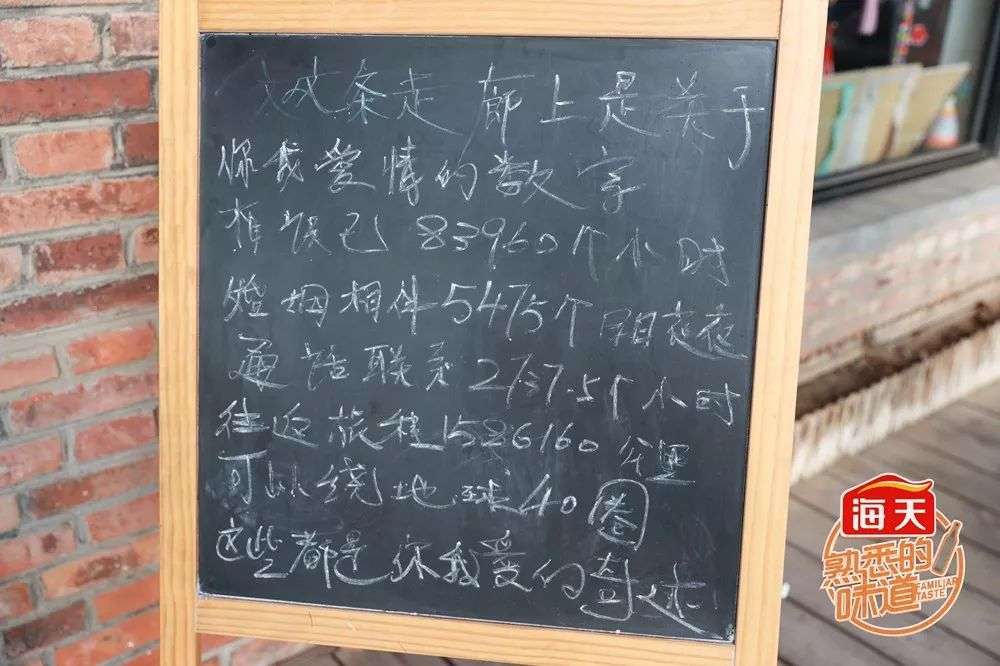 这条走廊上是关于
你我爱情的数字
相识已83960个小时
婚姻相伴5475个日日夜夜
通话联系2737.5个小时
往返旅程1586160公里
可以绕地球40圈
这些都是你我爱的奇迹
海天
熟悉的味道
FAMILIAR TASTE